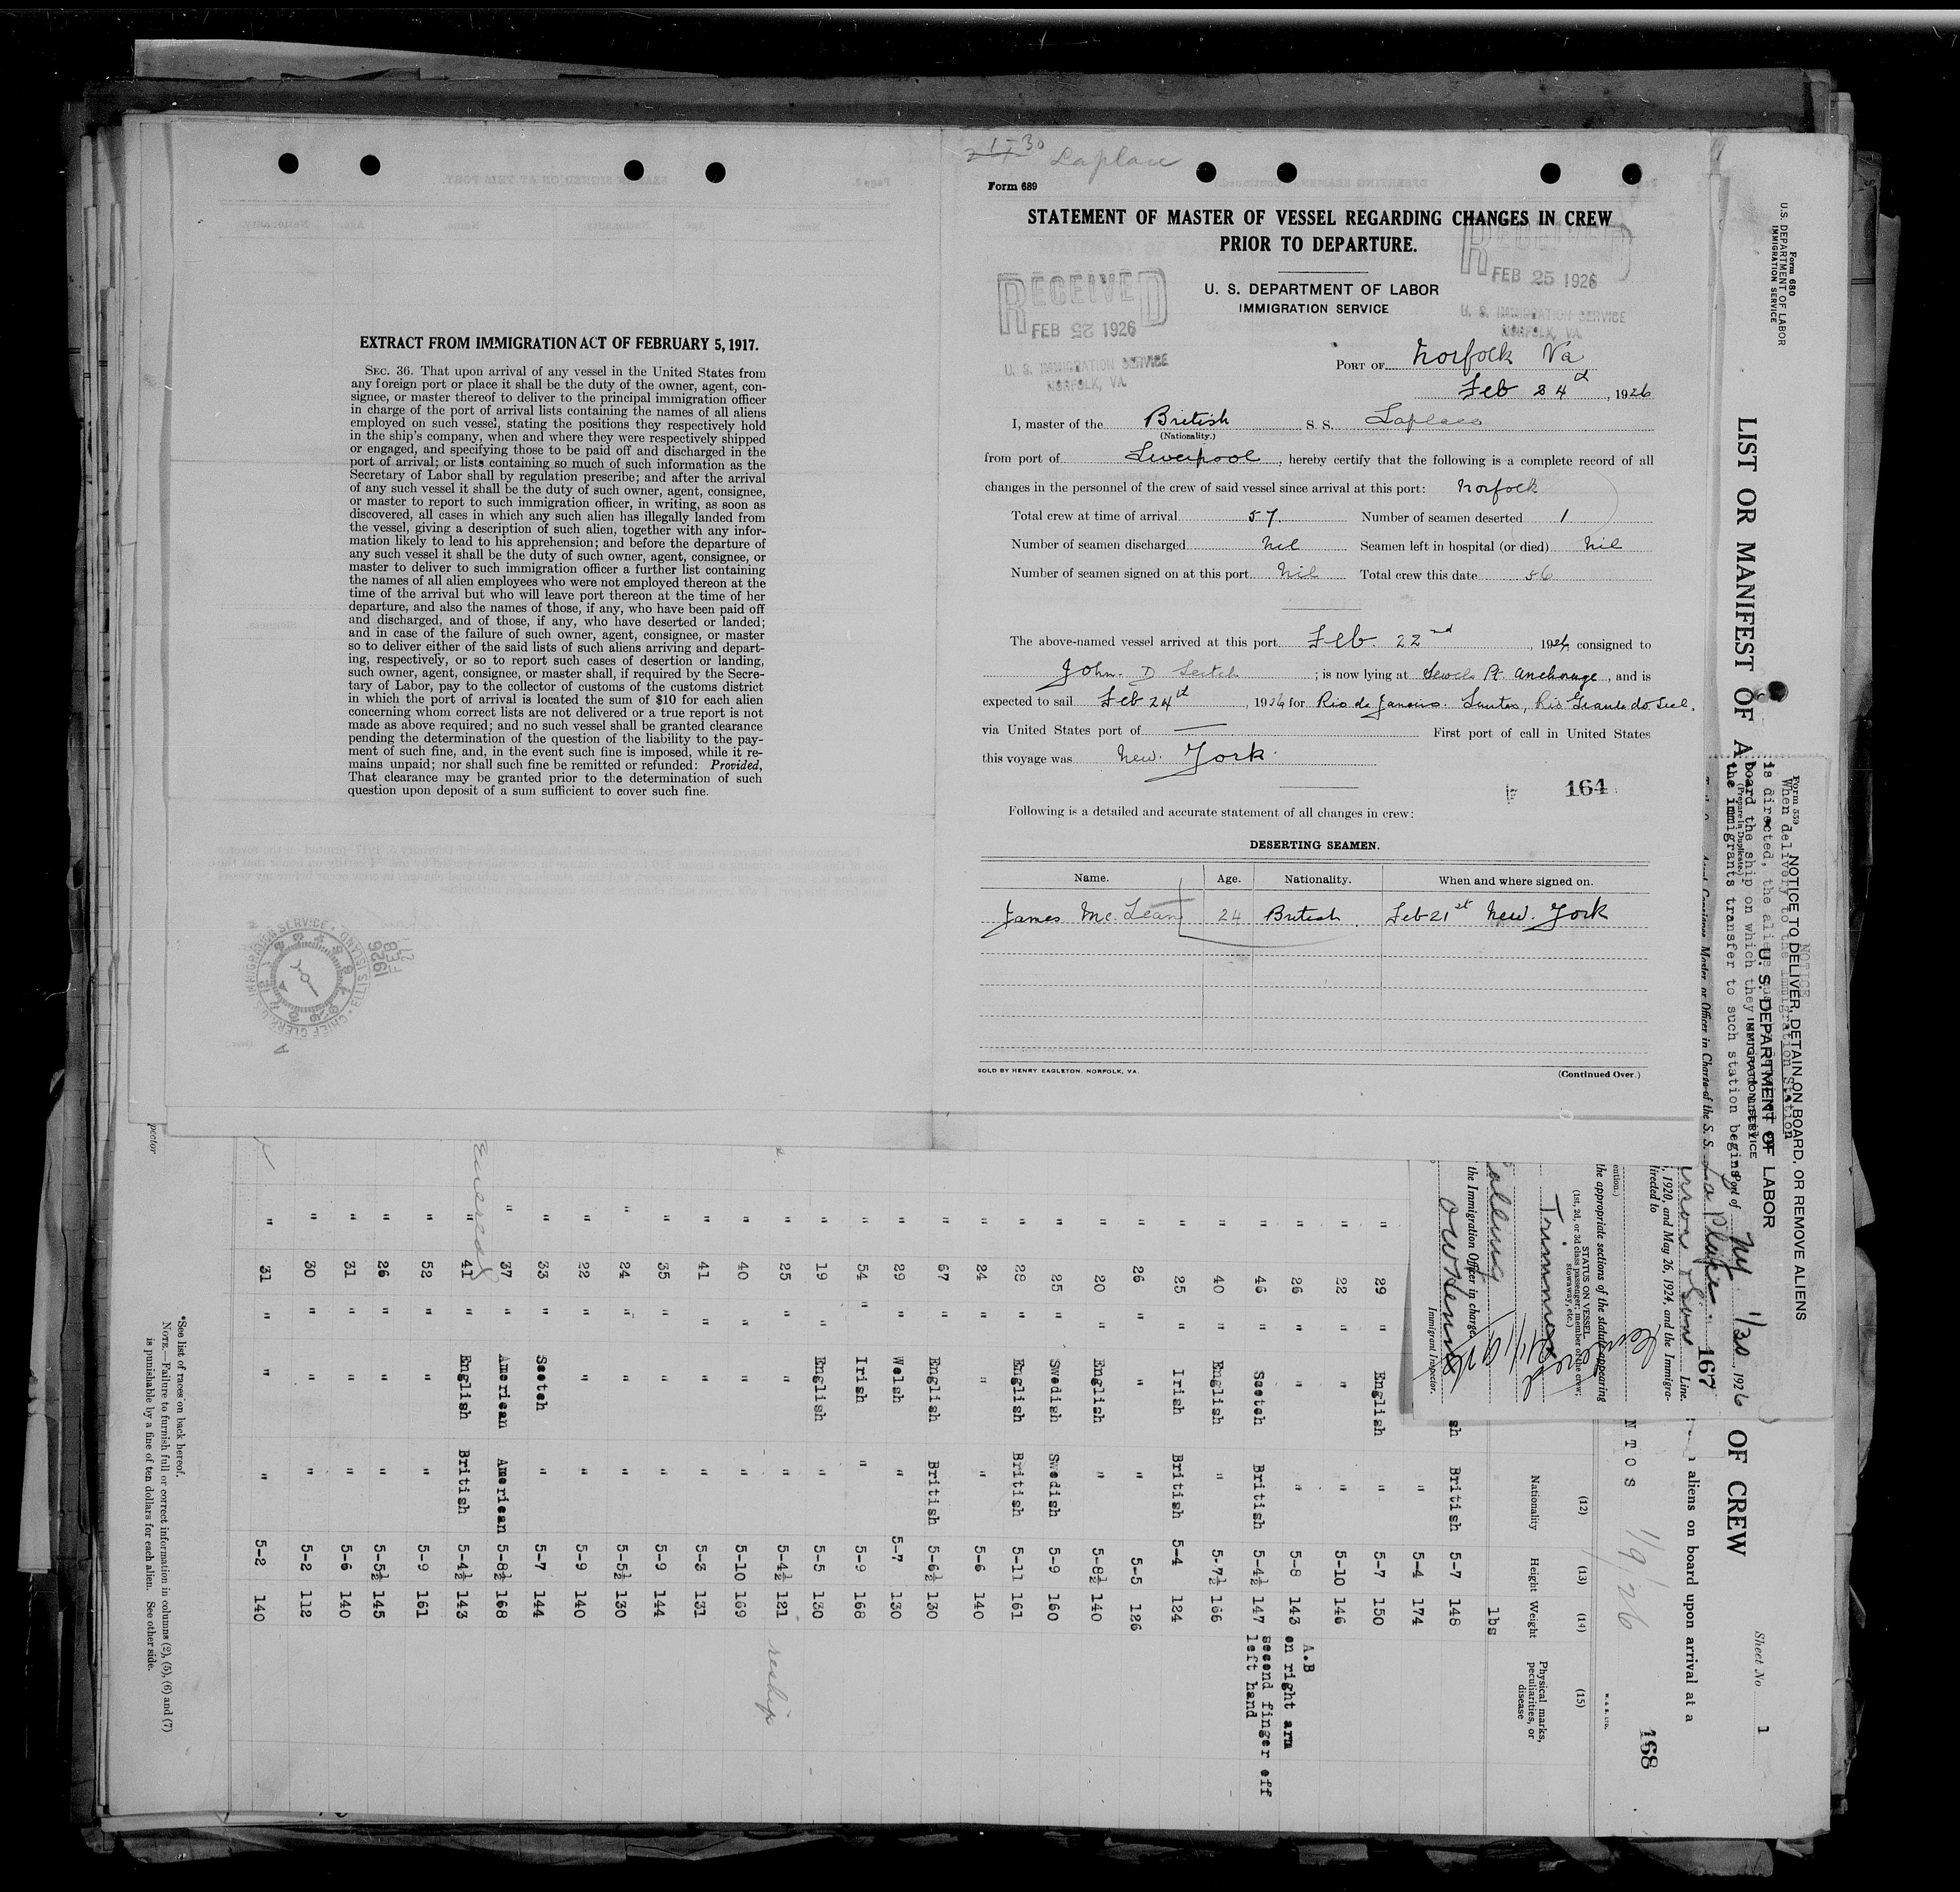 EXTRACT FROM IMMIGRATION ACT OF FEBRUARY 5, 1917.
SEC. 36. That upon arrival of any vessel in the United States from
any foreign port or place it shall be the duty of the owner, agent, con-
signee, or master thereof to deliver to the principal immigration officer
in charge of the port of arrival lists containing the names of all aliens
employed on such vessel, stating the positions they respectively hold
in the ship's company, when and where they were respectively shipped
or engaged, and specifying those to be paid off and discharged in the
port of arrival; or lists containing so much of such information as the
Secretary of Labor shall by regulation prescribe; and after the arrival
of any such vessel it shall be the duty of such owner, agent, consignee,
or master to report to such immigration officer, in writing, as soon as
discovered, all cases in which any such alien has illegally landed from
the vessel, giving a description of such alien, together with any infor-
mation likely to lead to his apprehension; and before the departure of
any such vessel it shall be the duty of such owner, agent, consignee, or
master to deliver to such immigration officer a further list containing
the names of all alien employees who were not employed thereon at the
time of the arrival but who will leave port thereon at the time of her
departure, and also the names of those, if any, who have been paid off
and discharged, and of those, if any, who have deserted or landed;
and in case of the failure of such owner, agent, consignee, or master
so to deliver either of the said lists of such aliens arriving and depart-
ing, respectively, or so to report such cases of desertion or landing,
such owner, agent, consignee, or master shall, if required by the Secre-
tary of Labor, pay to the collector of customs of the customs district
in which the port of arrival is located the sum of $10 for each alien
concerning whom correct lists are not delivered or a true report is not
made as above required; and no such vessel shall be granted clearance
pending the determination of the question of the liability to the pay-
ment of such fine, and, in the event such fine is imposed, while it re-
mains unpaid; nor shall such fine be remitted or refunded: Provided,
That clearance may be granted prior to the determination of such
question upon deposit of a sum sufficient to cover such fine.
CHIEF CLERK U.S IMMIGRATION SERVICE ELLIS ISLAND
1926 FEB
1-30 Laplace
Form 689
STATEMENT OF MASTER OF VESSEL REGARDING CHANGES IN CREW
PRIOR TO DEPARTURE.
U. S. DEPARTMENT OF LABOR
IMMIGRATION SERVICE
RECEIVED
FEB 25 1926
U. S. IMMIGRATION SERVICE
NORFOLK, VA.
RECEIVED
FEB 25 1926
U. S. IMMIGRATION SERVICE
NORFOLK, VA.
PORT OF Norfolk Va
Feb 24th, 1926
I, master of the British S. S. Laplace
(Nationality.)
from port of Liverpool, hereby certify that the following is a complete record of all
changes in the personnel of the crew of said vessel since arrival at this port: Norfolk
Total crew at time of arrival 57. Number of seamen deserted 1
Number of seamen discharged Nil Seamen left in hospital (or died) Nil
Number of seamen signed on at this port Nil Total crew this date 56
The above-named vessel arrived at this port Feb. 22nd, 1926 consigned to
John. D Leitch; is now lying at Sewels Pt. Anchorage, and is
expected to sail Feb 24th, 1926 for Rio de Janeiro. Santos, Rio Grande do Sul.
via United States port of — First port of call in United States
this voyage was New. York.
164
Following is a detailed and accurate statement of all changes in crew:
DESERTING SEAMEN.
Name. Age. Nationality. When and where signed on.
James Mc. Lean 24 British. Feb 21st New. York
SOLD BY HENRY EAGLETON, NORFOLK, VA.
(Continued Over.)
Form 680
U.S. DEPARTMENT OF LABOR
IMMIGRATION SERVICE
LIST OR MANIFEST OF A
OF CREW
Sheet No 1
aliens on board upon arrival at a
Form 559
(Prepare in Duplicate.)
NOTICE TO DELIVER, DETAIN ON BOARD, OR REMOVE ALIENS
U. S. DEPARTMENT OF LABOR
IMMIGRATION SERVICE
NOTICE
When delivery to the Immigration Station
is directed, the
board the ship on which they
the immigrants transfer to such station begins.
Port of NY 1/30, 1926
Agent, Consignee, Master, or Officer in Charge of the S. S. La Place
167
Line.
, 1920, and May 26, 1924, and the Immigra-
irected to
ention.)
the appropriate sections of the statute appearing
STATUS ON VESSEL
(1st, 2d, or 3d class passenger; member of the crew;
stowaway, etc.)
Trimmer
the Immigration Officer in charge
Immigrant Inspector.
NTOS
1/9/26
168
(12) (13) (14) (15)
Nationality Height Weight Physical marks, peculiarities, or disease
lbs
sh British 5-7 148
" 5-4 174
" 29 " English " 5-7 150
" 22 " " " 5-10 146
" 26 " " " 5-8 143 A.B on right arm
" 46 " Scotch British 5-4½ 147 second finger off left hand
" 40 " English " 5-7½ 166
" 25 " Irish British 5-4 124
" 26 " 5-5 126
" 20 " English " 5-8½ 140
" 25 " Swedish Swedish 5-9 160
" 28 " English British 5-11 161
" 24 " " " 5-6 140
" 67 " English British 5-6½ 130
" 29 " Welsh " 5-7 130
" 54 " Irish " 5-9 168
" 19 " English " 5-5 130
" 25 " " " 5-4½ 121 reship
" 40 " " " 5-10 169
" 41 " " " 5-3 131
" 35 " " " 5-9 144
" 24 " " " 5-5½ 130
" 22 " " " 5-9 140
" 33 " Scotch " 5-7 144
" 37 " American American 5-8½ 168
" 41 " English British 5-4½ 143
" 52 " " " 5-9 161
" 26 " " " 5-5½ 145
" 31 " " " 5-6 140
" 30 " " " 5-2 112
" 31 " " " 5-2 140
*See list of races on back hereof.
NOTE.—Failure to furnish full or correct information in columns (2), (5), (6) and (7)
is punishable by a fine of ten dollars for each alien. See other side.
pector